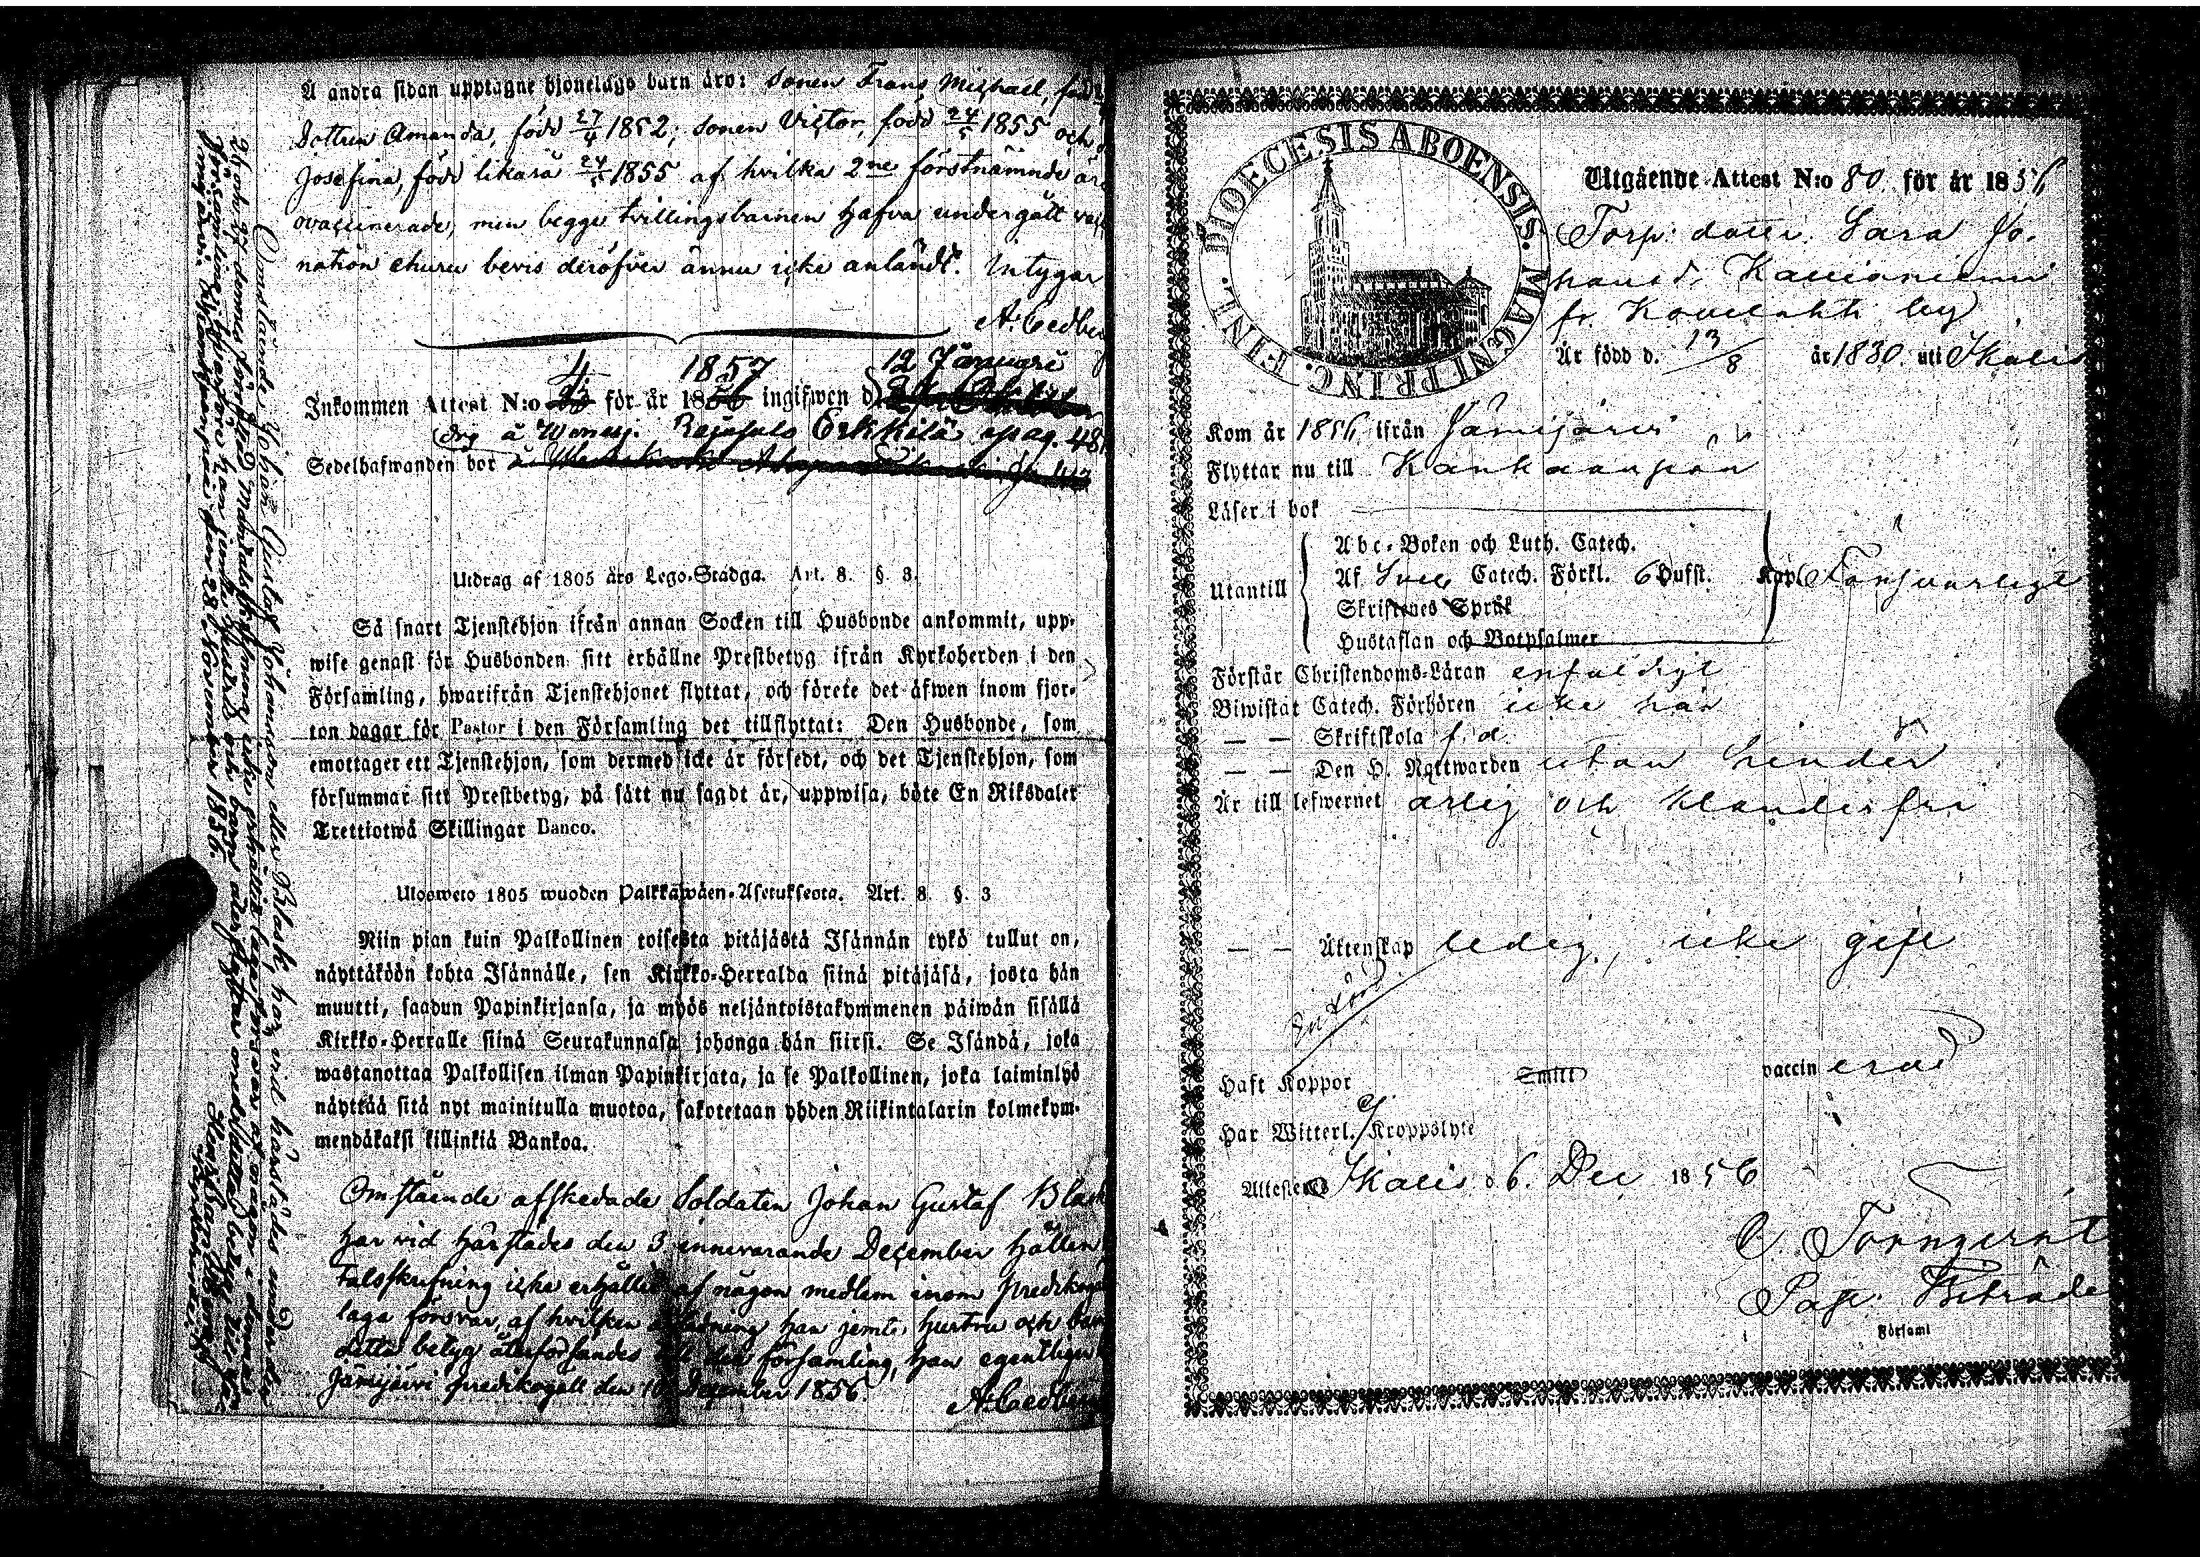 Å andra sidan upptagne hjonelags barn äro: sonen Frans Michael, född
Dottren Amanda, född 27/4 1852; sonen Victor, född 24/5 1855 och
Josefina, född likaså 24/5 1855 af hvilka 2ne förstnämnde äro
ovaccinerade, men begge tvillingsbarnen hafva undergått vacci
nation ehuru bevis deröfver ännu icke anländt. Intygar
A. Cedber
4 1857 12 Januari
Inkommen Attest N:o för år 18 ingifwen d
å Erkkilä pag. 48
Sedelhafwanden bor
Utdrag af 1805 års Lego-Stadga. Art. 8. §. 3.
Så snart Tjenstehjon ifrån annan Socken till Husbonde ankommit, upp-
wise genast för Husbonden sitt erhållne Prestbetyg ifrån Kyrkoherden i den
Församling, hwarifrån Tjenstehjonet flyttat, och förete det äfwen inom fjor-
ton dagar för Pastor i den Församling det tillflyttat: Den Husbonde, som
emottager ett Tjenstehjon, som dermed icke är försedt, och det Tjenstehjon, som
försummar sitt Prestbetyg, på sätt nu sagdt är, uppwisa, böte En Riksdaler
Trettiotwå Skillingar Banco.
Ulosweto 1805 wuoden Palkkawäen-Asetuksesta. Art. 8. §. 3
Niin pian kuin Palkollinen toisesta pitäjästä Isännän tykö tullut on,
näyttäköön kohta Isännälle, sen Kirkko-Herralda siinä pitäjäsä, josta hän
muutti, saadun Papinkirjansa, ja myös neljäntoistakymmenen päiwän sisällä
Kirkko-Herralle siinä Seurakunnasa johonga hän siirsi. Se Isändä, joka
wastanottaa Palkollisen ilman Papinkirjata, ja se Palkollinen, joka laiminlyö
näyttää sitä nyt mainitulla muotoa, sakotetaan yhden Riikintalarin kolmekym-
mendäkaksi killinkiä Bankoa.
Omstående afskedade Soldaten Johan Gustaf Blask
har vid härstädes den 3 innevarande December hållen
Talsskrifning icke erhållit af någon medlem inom predikogäll
laga försvar, af hvilken anledning han jemte hustru och barn
detta betyg återförsändes till den församling, han egentligen
Jämijärvi predikogäll den 10 December 1856.
A. Cedber
Omstående Johan Gustaf Johansson eller Blask, har vid härstädes under den
26 och 27 dennes förrättad Mantalsskrifning icke erhållit laga försvar af någon i denna
församling, hvarföre han jemte hustru och barn återflyttar med detta betyg till
Jämijärvi. Kankaanpää den 28 November 1856.
DIOECESIS ABOENSIS. MAGNI PRINC. FINL.
Utgående Attest N:o 80 för år 1856
Torp. dottr. Sara Jo-
hansd. Kallioniemi
fr. Kovelahti by
Är född d. 13/8 år 1830 uti Ikalis
Kom år 1856 ifrån Jämijärvi
Flyttar nu till Kankaanpää
Läser i bok
Abc-Boken och Luth. Catech.
Utantill Af Sveb. Catech. Förkl. 6 Hufst. Kapl. Försvarligt
Skriftenes Språk
Hustaflan och Botpsalmer
Förstår Christendoms-Läran enfaldigt
Biwistat Catech. Förhören icke här
— — Skriftskola f. d.
— — Den H. Nattwarden utan hinder
Är till lefwernet ärlig och klanderfri
— — Äktenskap ledig, icke gift
Haft Koppor Smitt vaccinerad
Har Witterl. Kroppslyte
Attesteras Ikalis d 6. Dec 1856
C. Törnqvist
Past. Biträde
Församl